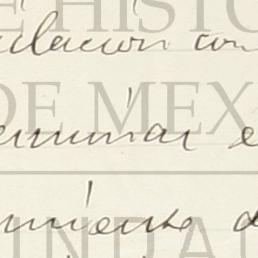 E HISTO
elación con
DE MEX
erminar e
miento d
UNDA